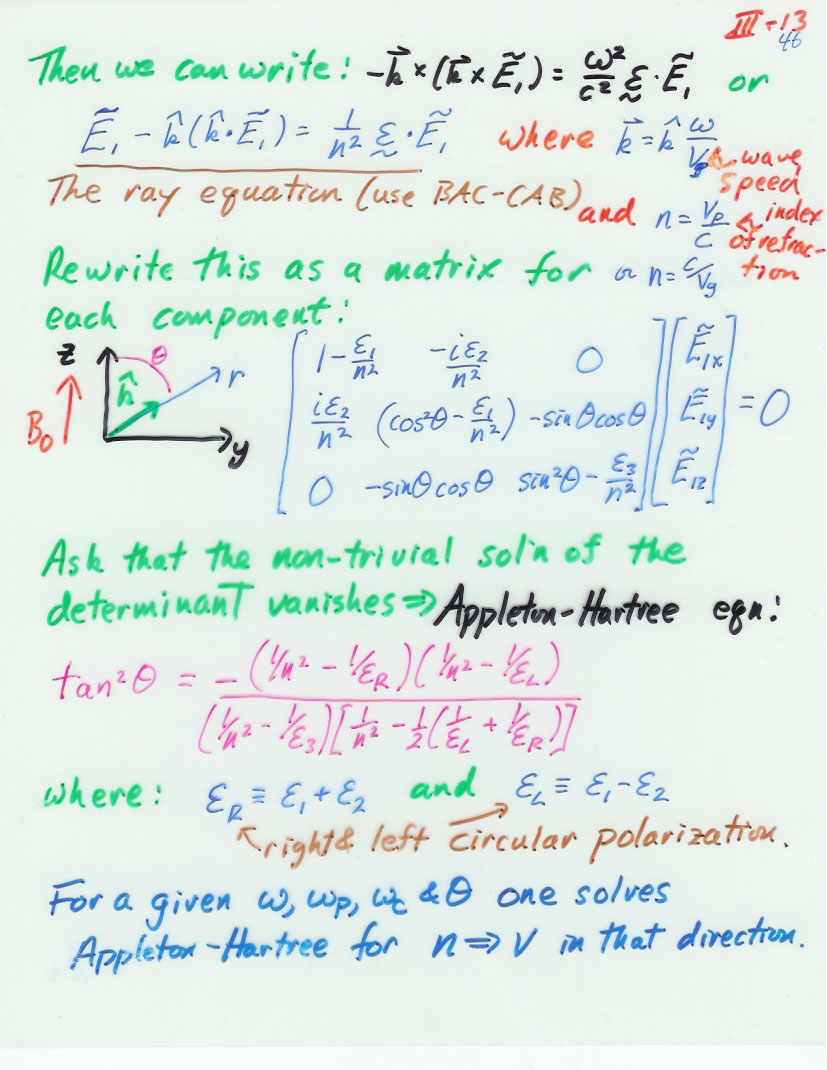 III-13
46
Then we can write: -k⃗ × (k⃗ × Ẽ₁) = ω²/c² ε̰ · Ẽ₁ or
Ẽ₁ - k̂(k̂·Ẽ₁) = 1/n² ε̰ · Ẽ₁ where k⃗ = k̂ ω/Vp ← wave speed
The ray equation (use BAC-CAB) and n = Vp/c ← index of refraction
Rewrite this as a matrix for or n = c/Vg
each component:
z θ r k̂ B₀ y
[ 1 - ε₁/n² -iε₂/n² 0 ] [ Ẽ₁x ]
[ iε₂/n² (cos²θ - ε₁/n²) -sinθcosθ ] [ Ẽ₁y ] = 0
[ 0 -sinθcosθ sin²θ - ε₃/n² ] [ Ẽ₁z ]
Ask that the non-trivial sol'n of the
determinant vanishes ⇒ Appleton-Hartree eqn:
tan²θ = -(1/n² - 1/εR)(1/n² - 1/εL) / (1/n² - 1/ε₃)[1/n² - 1/2(1/εL + 1/εR)]
where: εR ≡ ε₁ + ε₂ and εL ≡ ε₁ - ε₂
right & left circular polarization.
For a given ω, ωp, ωc & θ one solves
Appleton-Hartree for n ⇒ V in that direction.